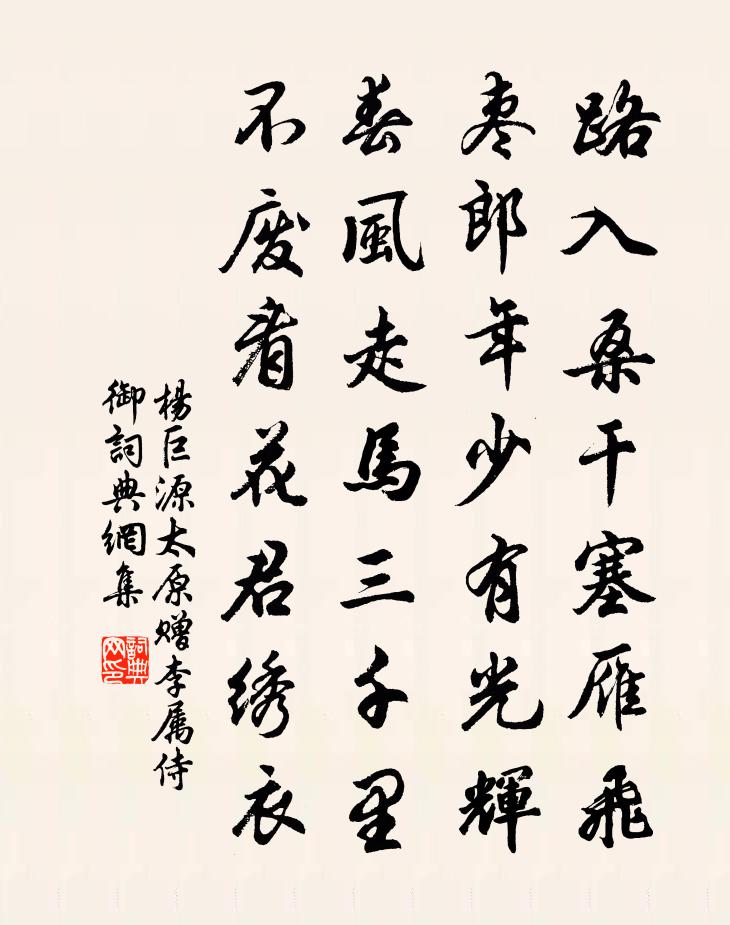 路入桑干塞雁飛
枣郎年少有光輝
春風走馬三千里
不废看花君绣衣
楊巨源太原赠李属侍
御詞典網集
詞典
网印